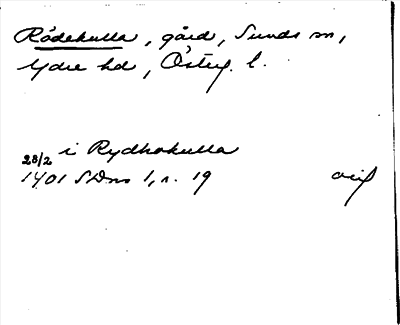 Rödekulla, gård, Sunds sn,
Ydre hd, Östug. l.
i Rydhakulla
28/2
1401 SDns 1, n. 19 orig